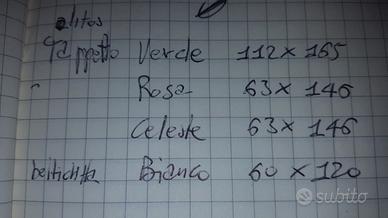 Tappeto Verde 112 x 165
" Rosa 63 x 146
Celeste 63 x 146
Bianco 60 x 120
subito